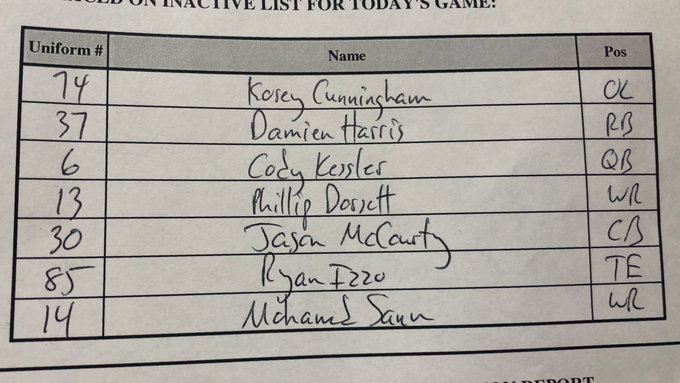 ON INACTIVE LIST FOR TODAY'S GAME:
Uniform # Name Pos
74 Korey Cunningham OL
37 Damien Harris RB
6 Cody Kessler QB
13 Phillip Dorsett WR
30 Jason McCourty CB
85 Ryan Izzo TE
14 Mohamed Sanu WR
REPORT